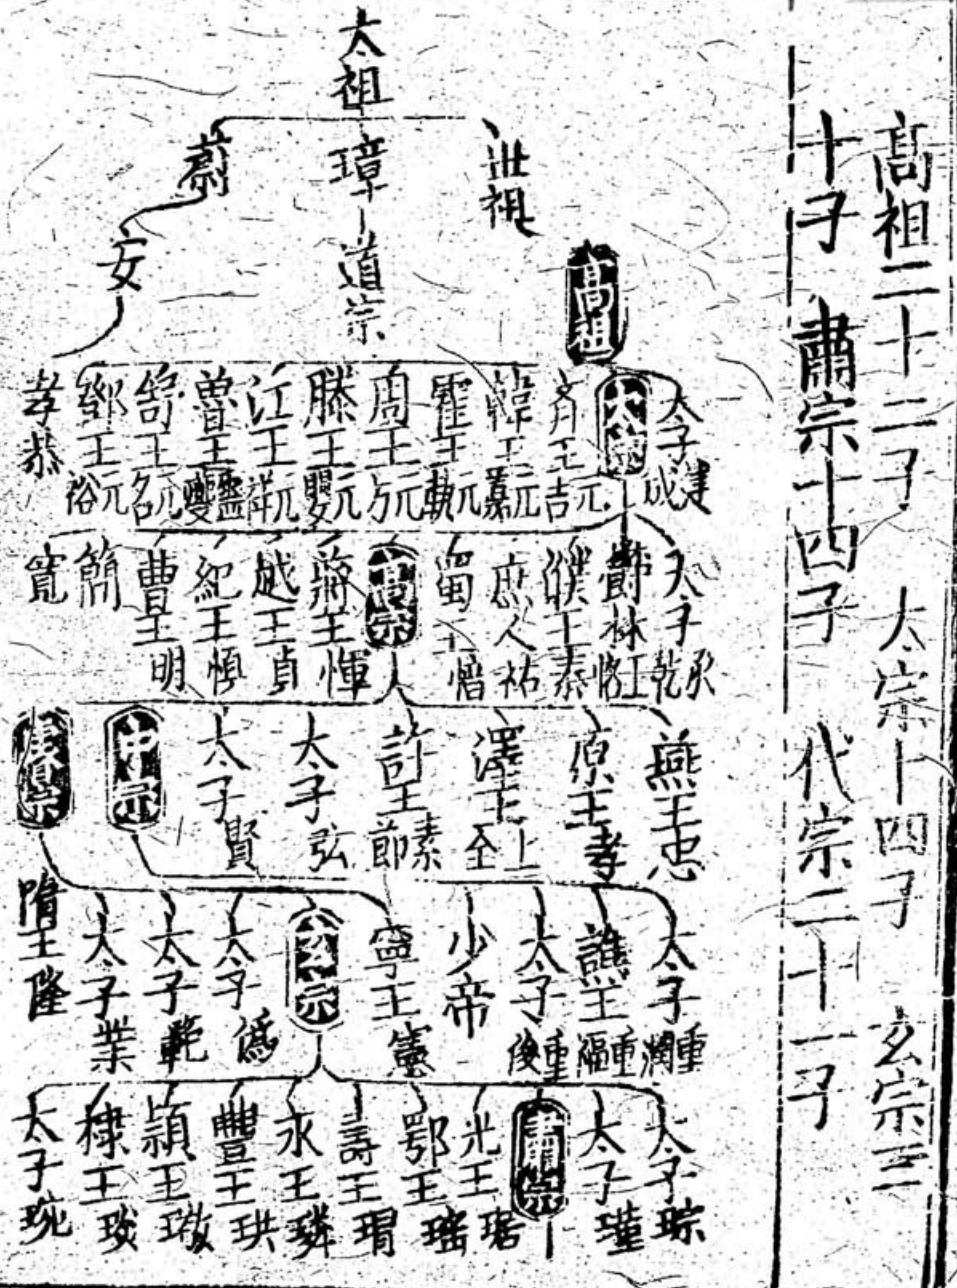 高祖二十二子　太宗十四子　玄宗三
十子　肅宗十四子　代宗二十一子
太祖
世祖
璋
蔚
道宗
安
高祖
太子建成
太宗
齊王元吉
韓王元嘉
霍王元軌
周王元方
滕王元嬰
江王元祥
魯王靈夔
舒王元名
鄧王元裕
孝恭
太子承乾
鬱林王恪
濮王泰
庶人祐
蜀王愔
高宗
蔣王惲
越王貞
紀王慎
曹王明
簡
寬
燕王忠
原王孝
澤王上金
許王素節
太子弘
太子賢
中宗
睿宗
太子重潤
譙王重福
太子重俊
少帝
寧王憲
玄宗
太子
太子範
太子業
隋王隆
太子琮
太子瑾
肅宗
光王琚
鄂王瑤
壽王瑁
永王璘
豐王珙
頴王璬
棣王琰
太子琬